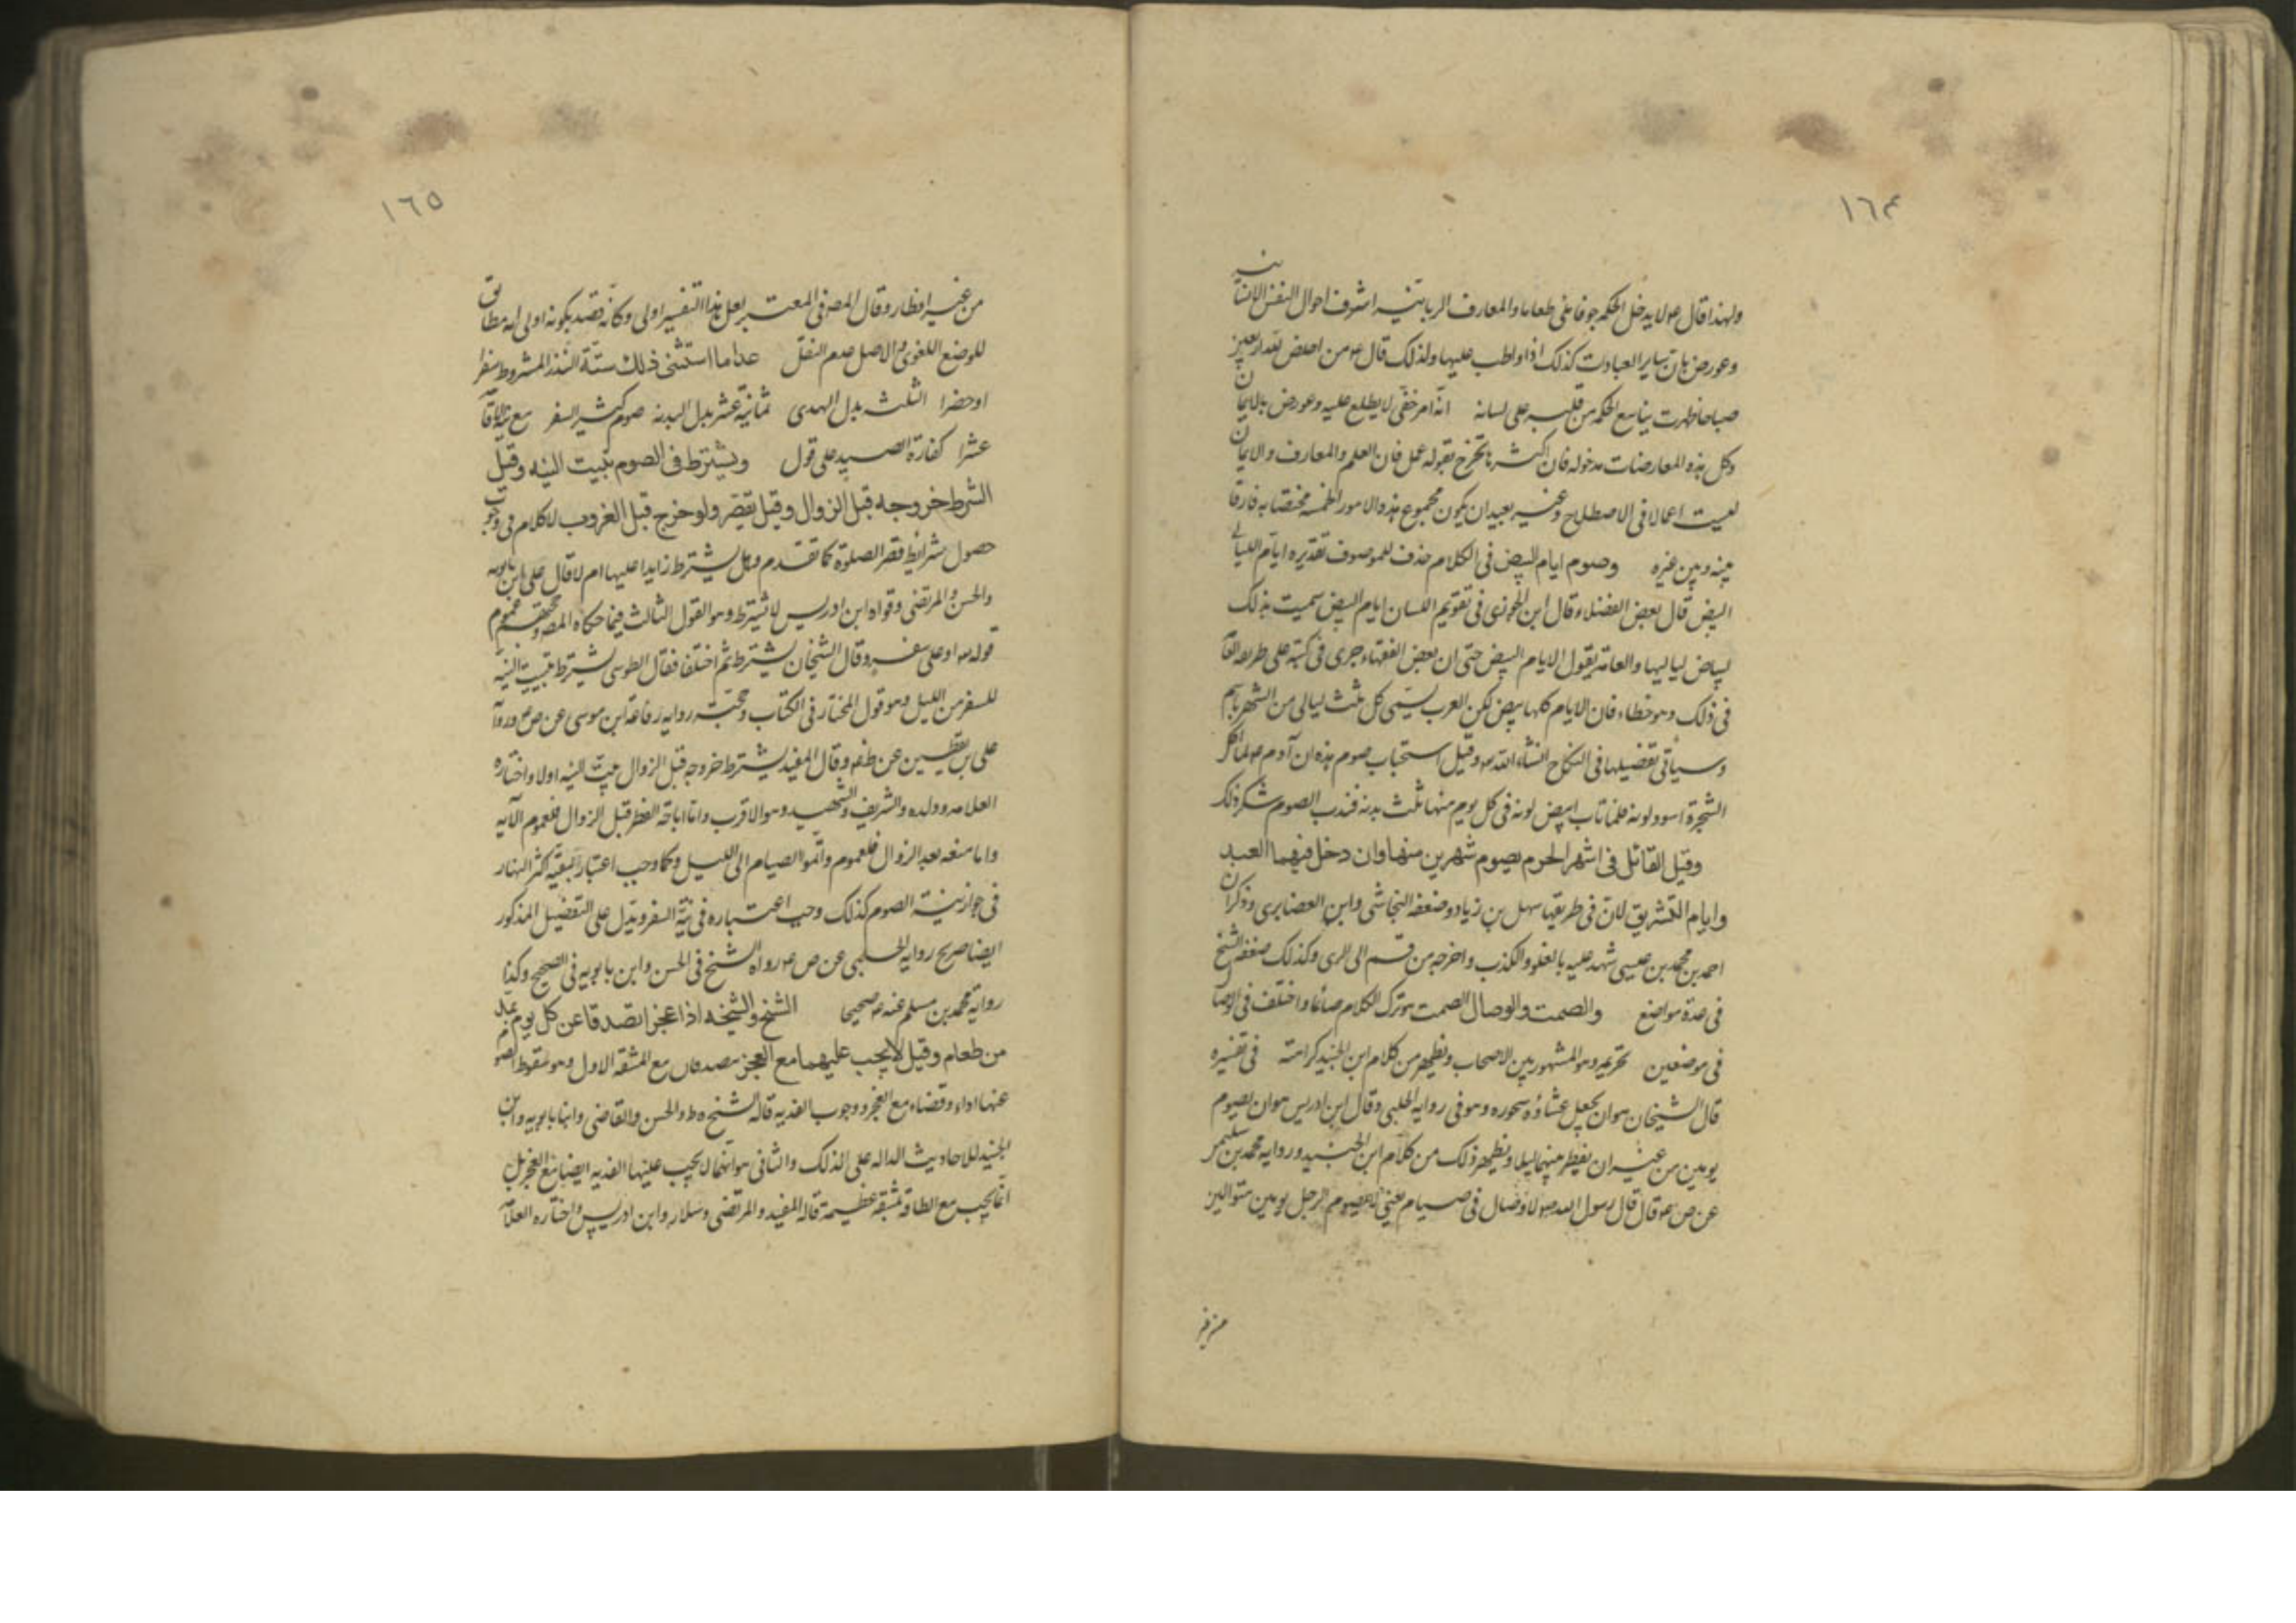 ١٦٤
ولهذا قال ع لا يدخل الحكمة جوفا ملئ طعاما والمعارف الربانية اشرف احوال النفس الانسانية
وعورض بان ساير العبادات كذلك اذا واظب عليها ولذلك قال ع من اخلص لله اربعين
صباحا ظهرت ينابيع الحكمة من قلبه على لسانه انه امر خفى لا يطلع عليه وعورض بالايمان
وكل هذه المعارضات مدخوله فان اكثرها تخرج بقوله عمل فان العلم والمعارف والايمان
ليست اعمالا فى الاصطلاح وغير بعيد ان يكون مجموع هذه الامور الخمسة مختصا به فارقا
بينه وبين غيره وصوم ايام البيض فى الكلام حذف للموصوف تقديره ايام الليالى
البيض قال بعض الفضلاء قال ابن الجوزى فى تقويم اللسان ايام البيض سميت بذلك
لبياض لياليها والعامة يقول الايام البيض حتى ان بعض الفقهاء جرى فى كتبه على طريقه
فى ذلك وهو خطاء فان الايام كلها بيض لكن العرب يسمى كل ثلث ليالى من الشهر باسم
وسيأتى تفضيلها فى النكاح انشاء الله وقيل استحباب صوم هذه ان آدم ع لما اكل
الشجرة اسود لونه فلما تاب ابيض لونه فى كل يوم منها ثلث بدنه فندب الصوم شكر ذلك
وقيل القاتل فى اشهر الحرم يصوم شهرين منها وان دخل فيهما العيد
وايام التشريق لان فى طريقها سهل بن زياد وضعفه النجاشى وابن الغضايرى وذكر ان
احمد بن محمد بن عيسى شهد عليه بالغلو والكذب واخرجه من قم الى الرى وكذلك ضعفه الشيخ
فى عدة مواضع والصمت والوصال الصمت هو ترك الكلام صائما واختلف فى الوصال
فى موضعين تحريمه وهو المشهور بين الاصحاب ويظهر من كلام ابن الجنيد كراهته فى تفسيره
قال الشيخان هو ان يجعل عشاؤه سحوره وهو فى رواية الحلبى وقال ابن ادريس هو ان يصوم
يومين من غير ان يفطر بينهما ليلا ويظهر ذلك من كلام ابن الجنيد ورواية محمد بن سليمن
عن ص ع قال قال رسول الله ص لا وصال فى صيام يعنى لا يصوم الرجل يومين متواليين
من غير
١٦٥
من غير افطار وقال المص فى المعتبر لعل هذا التفسير اولى وكانه قصد بكونه اولى انه مطابق
للوضع اللغوى والاصل عدم النقل عدا ما استثنى ذلك ستة النذر المشروط سفرا
او حضرا الثلث بدل الهدى ثمانية عشر بدل البدنه صوم كثير السفر مع
عشرا كفارة الصيد على قول ويشترط فى الصوم تبييت النيه وقيل
الشرط خروجه قبل الزوال وقيل يقصر ولو خرج قبل الغروب لا كلام فى وجوب
حصول شرايط قصر الصلوة كما تقدم وهل يشترط زايدا عليها ام لا قال على بن بابويه
والحسن والمرتضى وقواه ابن ادريس لا يشترط وهو القول الثالث فيما حكاه المص وحجتهم عموم
قوله او على سفر وقال الشيخان يشترط ثم اختلفا فقال الطوسى يشترط تبييت النية
للسفر من الليل وهو قول المختار فى الكتاب وحجته رواية رفاعة ابن موسى عن ص ع ورواية
على بن يقطين عن ظم وقال المفيد يشترط خروجه قبل الزوال بيت النيه اولا واختاره
العلامه وولده والشريف والشهيد وهو الاقرب واما اباحة الفطر قبل الزوال فلعموم الآيه
واما منعه بعد الزوال فلعموم واتموا الصيام الى الليل وكما وجب اعتبار بقية اكثر النهار
فى جواز نية الصوم كذلك وجب اعتباره فى نية السفر ويدل على التفصيل المذكور
ايضا صريح رواية الحلبى عن ص ع رواه الشيخ فى الحسن وابن بابويه فى الصحيح وكذا
رواية محمد بن مسلم عنه ع صحيحا الشيخ والشيخه اذا عجزا تصدقا عن كل يوم بمد
من طعام وقيل لا يجب عليهما مع العجز ويتصدقان مع المشقه الاول وهو سقوط الصوم
عنهما اداء وقضاء مع العجز ووجوب الفديه قاله الشيخ ه ط والحسن والقاضى وابنا بابويه وابن
الجنيد للاحاديث الداله على ذلك والثانى هو انهما لا يجب عليهما الفديه ايضا مع العجز بل
انما يجب مع الطاقة بمشقة عظيمة قاله المفيد والمرتضى وسلار وابن ادريس واختاره العلامة